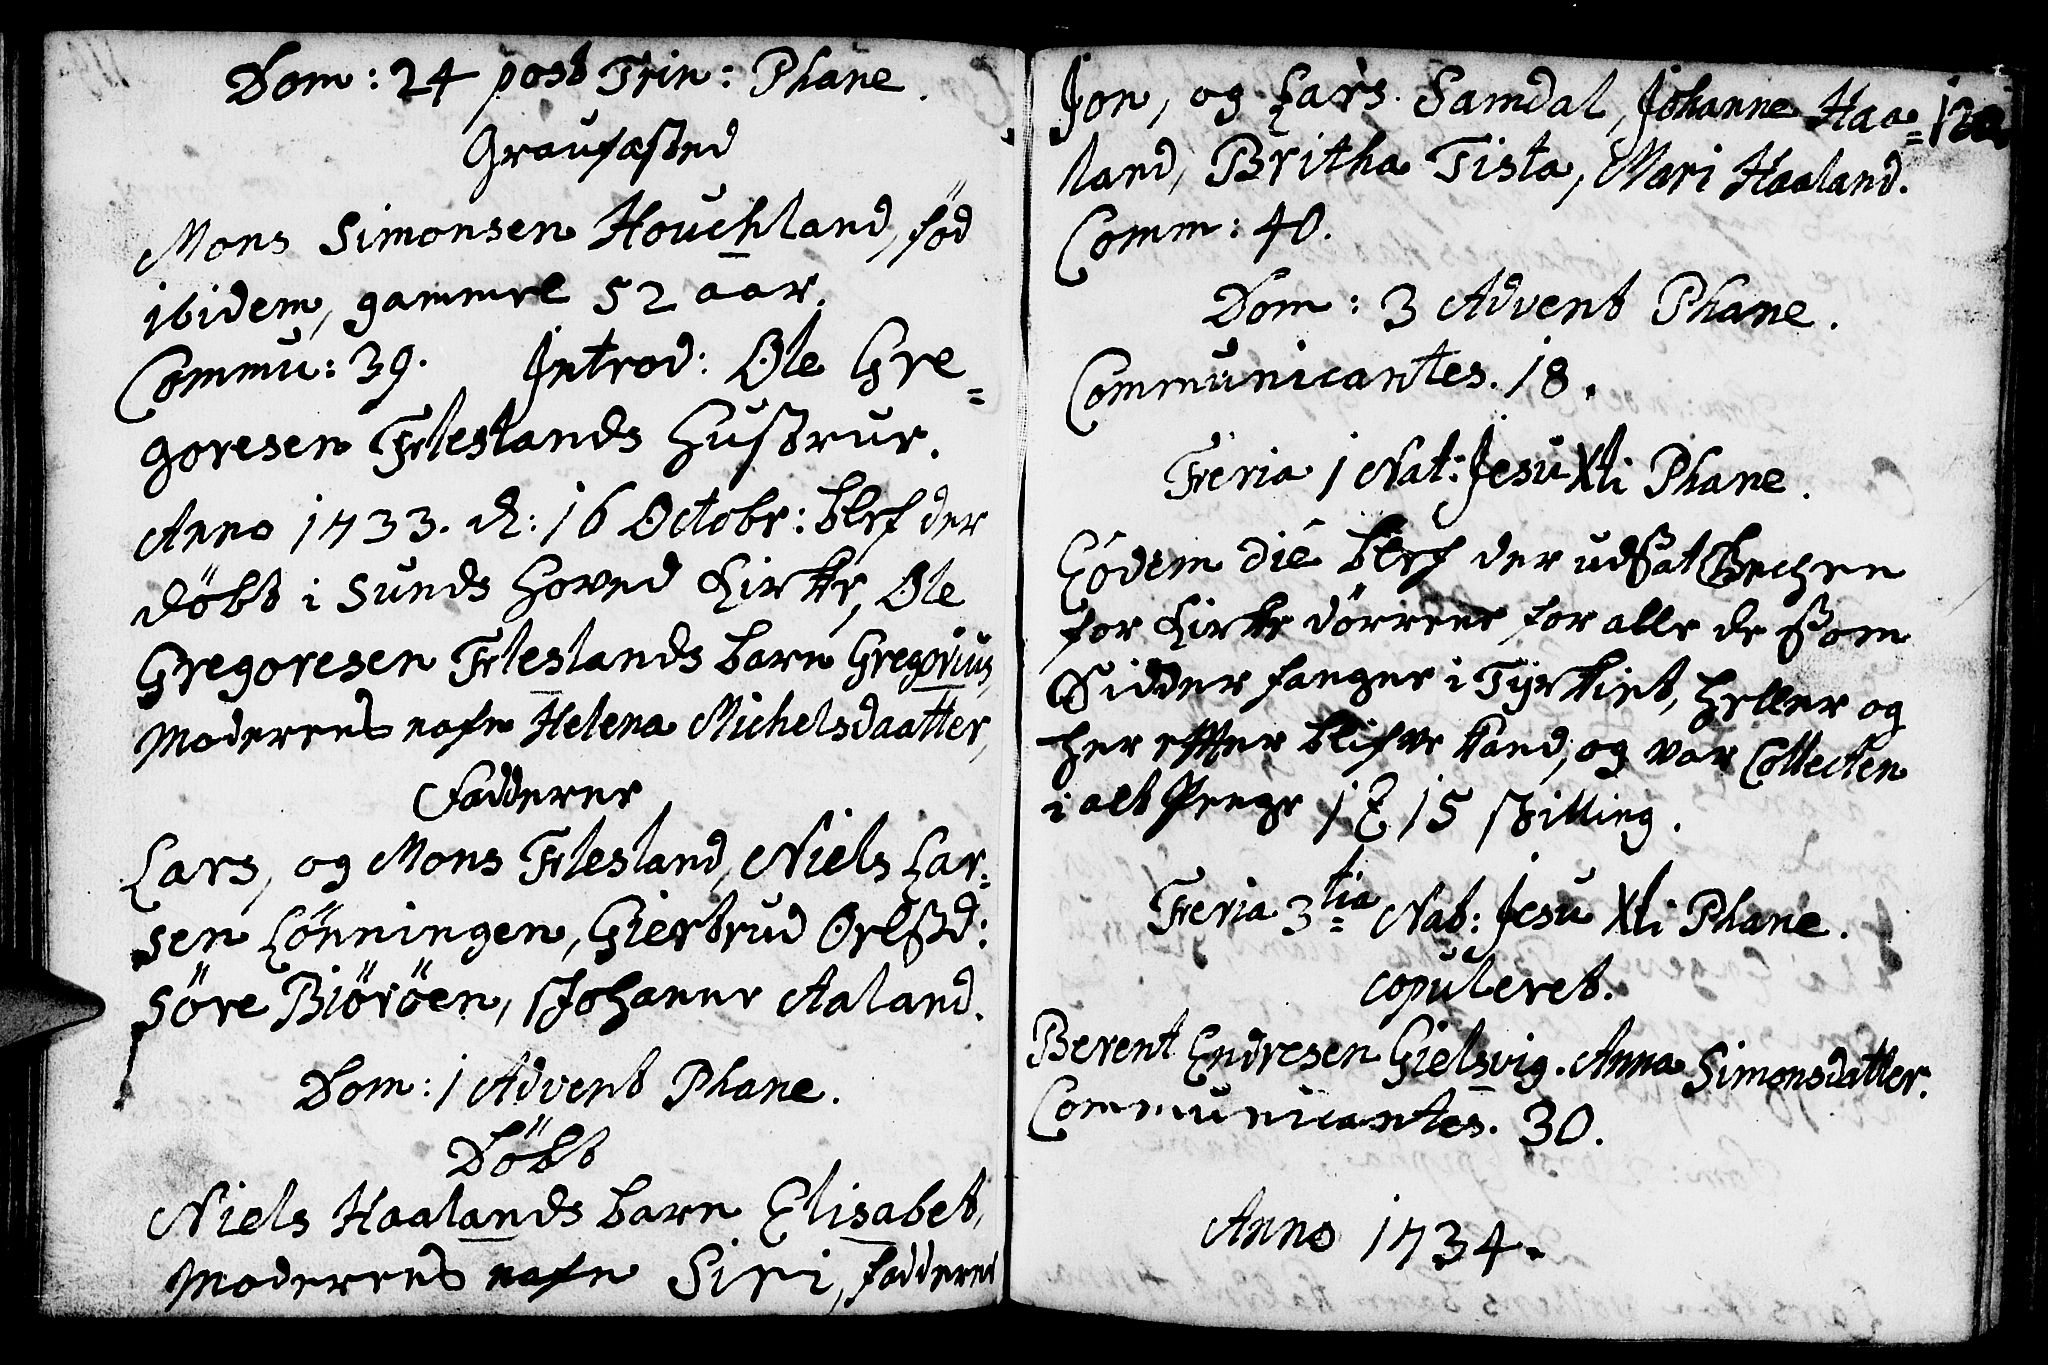 Dom: 24 post Trin: Phane.
Graufæsted
Mons Simonsen Houchland, föd
ibidem, gammel 52 aar.
Commu: 39. Introd: Ole Gre=
goresen Fleslands Hustrue.
Anno 1733. d: 16 Octobr: blef der
döbt i Sunds Hoved Kirke, Ole
Gregoresen Fleslands barn Gregorius,
Moderens nafn Helena Michelsdaatter,
Fadderne
Lars, og Mons Flesland, Niels Lar=
sen Lönningen, Giertrud
Söre Biöröen, Johanne Aaland.
Dom: 1 Advent Phane.
Döbt
Niels Haalands barn Elisabet,
Moderens nafn Siri, fadderne
Jon, og Lars Samdal, Johanne Haa=
land, Britha Tista, Mari Haaland.
Comm: 40.
Dom: 3 Advent Phane.
Communicantes. 18.
Feria 1 Nat: Jesu Xti Phane.
Eodem die blef der udsat Bechen
for Kirke dörrene for alle de som
Sidder fanger i Tyrkiet, heller og
her effter blifve kand, og var Collecten
i alt Penge 1 15 skilling.
Feria 3tia Nat: Jesu Xti Phane.
copuleret.
Berent Endresen Gielsvig. Anna Simonsdatter.
Communicantes. 30.
Anno 1734.